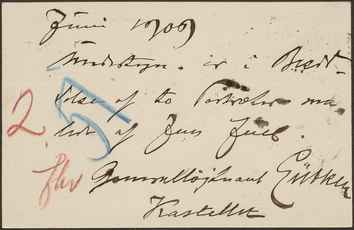 Juni 1909
Undertegn. er i Besid-
delse af to Portræter ma
let af Jens Juel.
2
Generallöjtnant
Kastellet